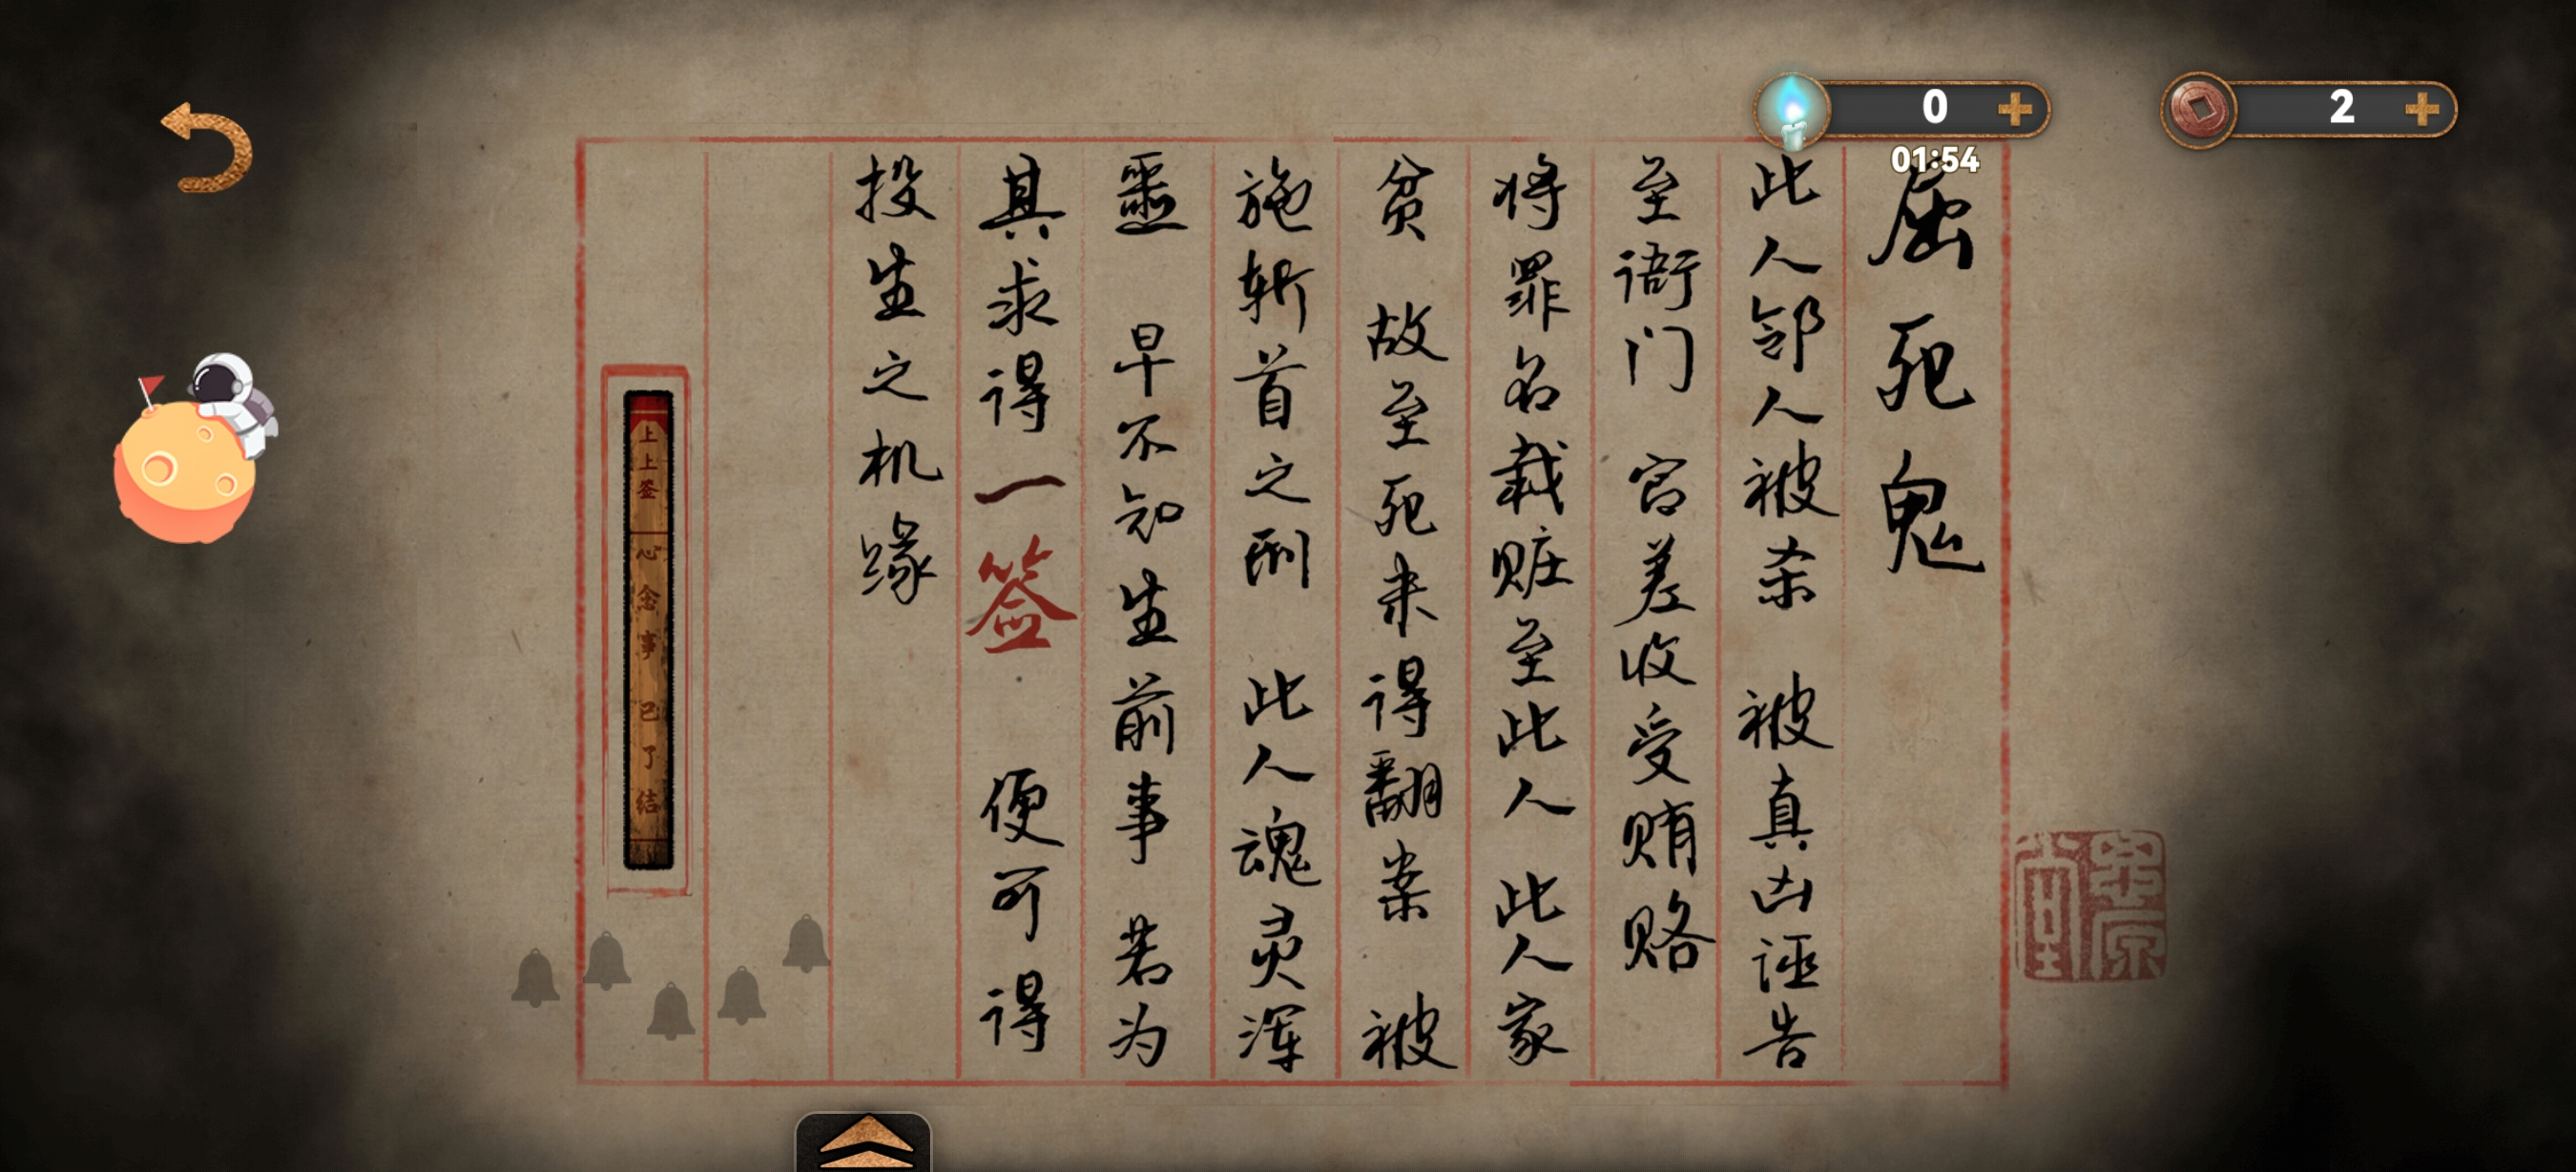 0
2
01:54
屈死鬼
此人邻人被杀 被真凶诬告
至衙门 官差收受贿赂
将罪名栽赃至此人 此人家
贫 故至死未得翻案 被
施斩首之刑 此人魂灵浑
噩 早不知生前事 若为
其求得一签 便可得
投生之机缘
上上签 心念事已了结